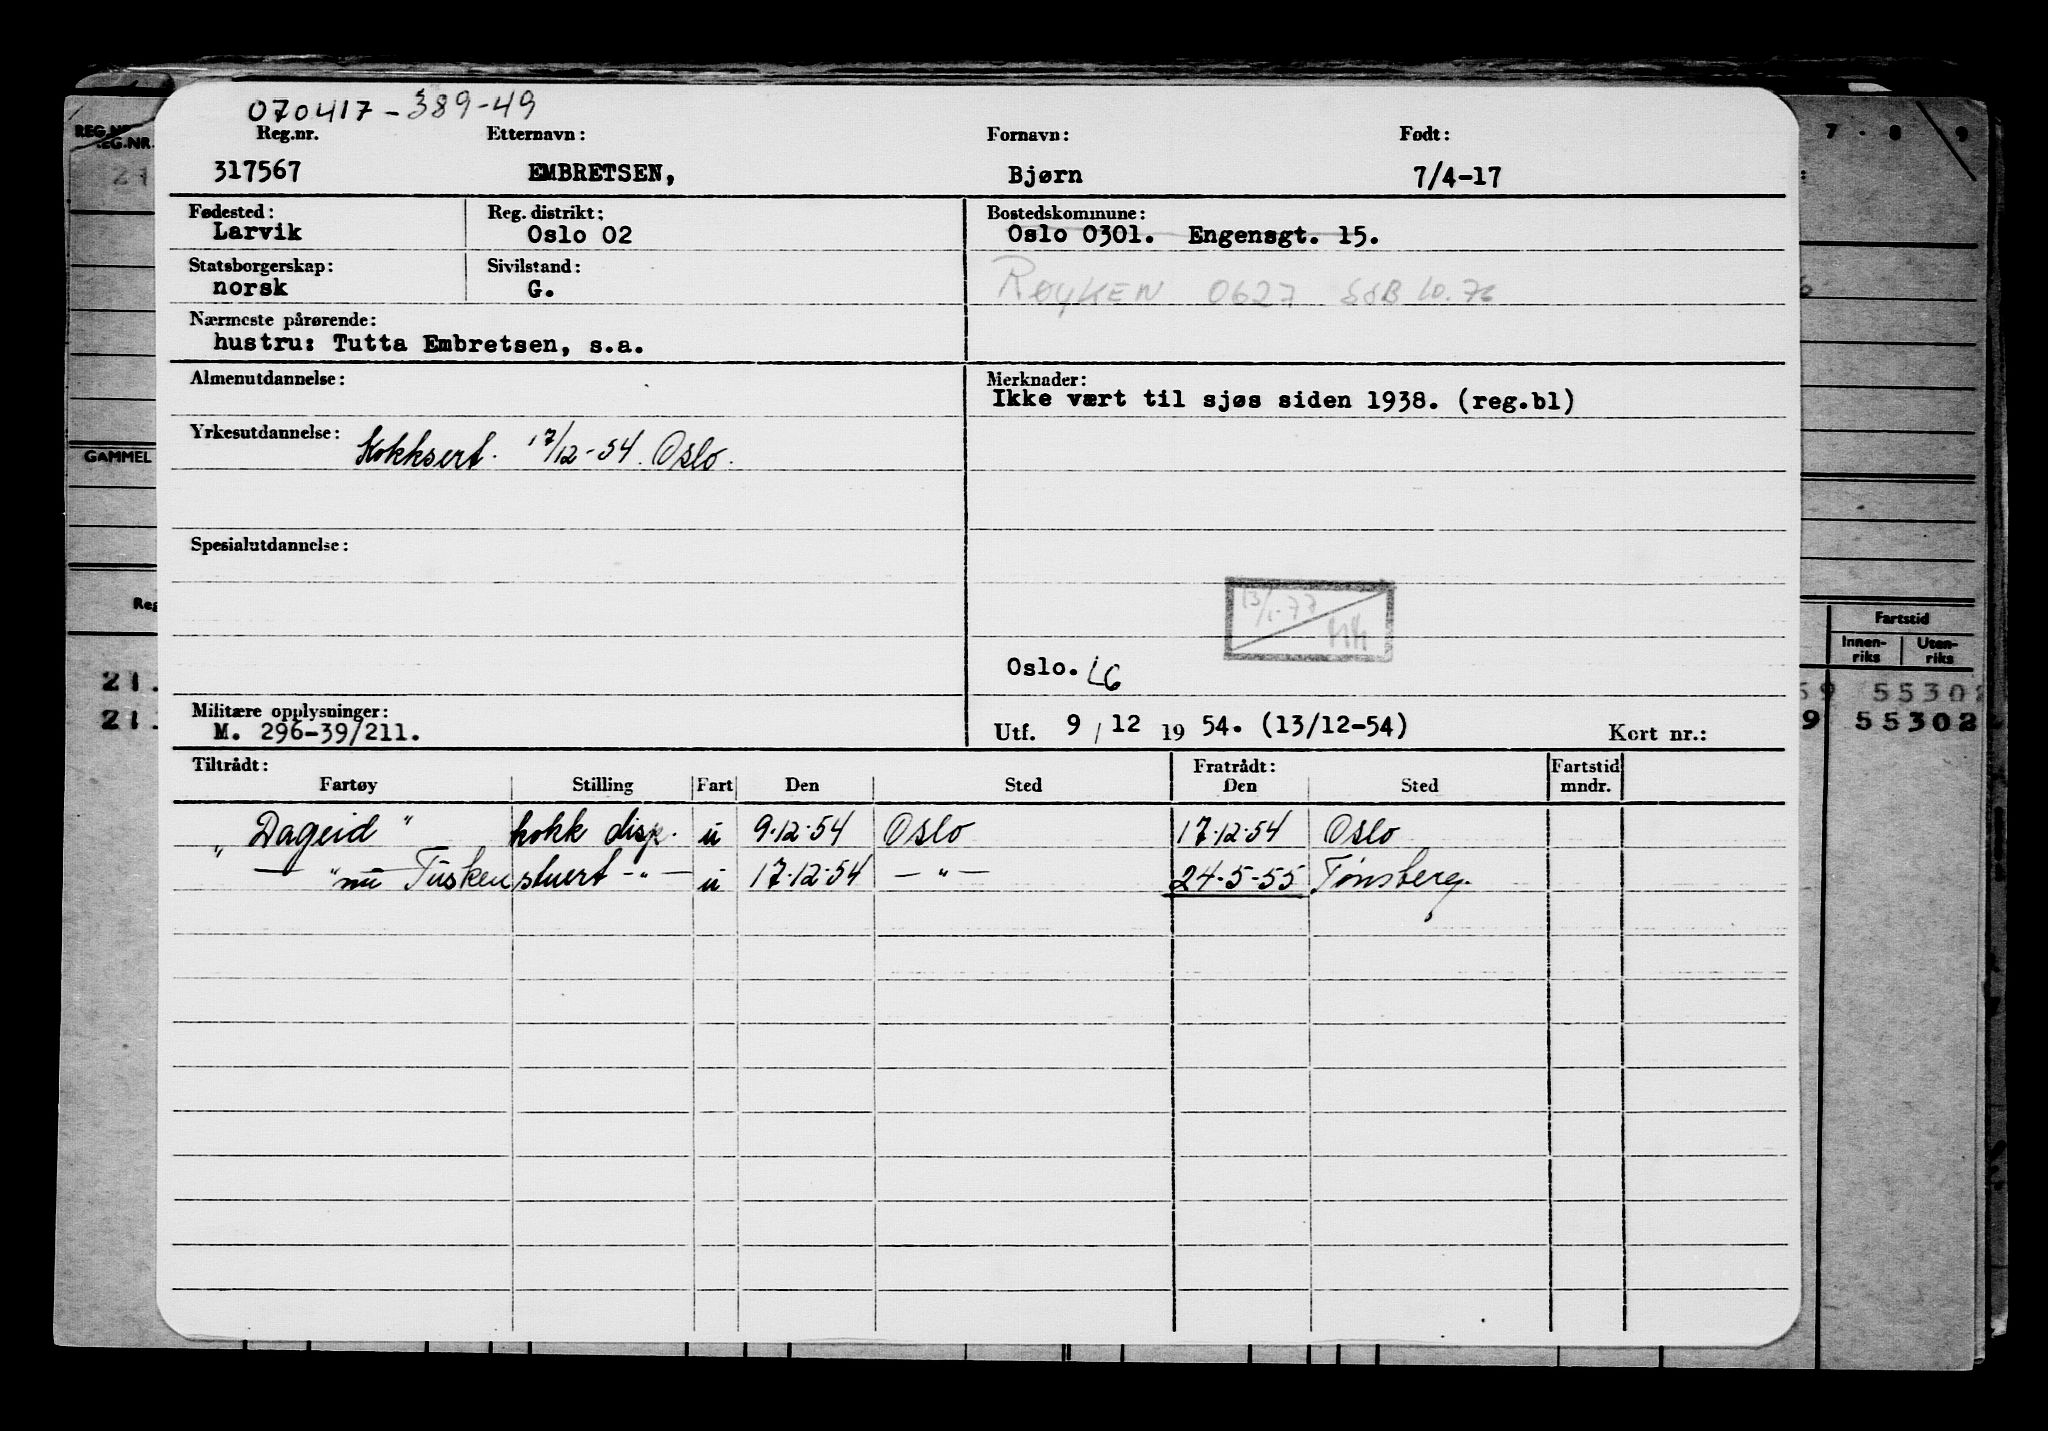 070417-389-49
Reg.nr. Etternavn: Fornavn: Født:
317567 EMBRETSEN, Bjørn 7/4-17
Fødested: Reg. distrikt: Bostedskommune:
Larvik Oslo 02 Oslo 0301. Engensgt. 15.
Statsborgerskap: Sivilstand:
norsk G. RØYKEN 0627 SSB 10.76
Nærmeste pårørende:
hustru: Tutta Embretsen, s.a.
Almenutdannelse: Merknader:
Ikke vært til sjøs siden 1938. (reg.bl)
Yrkesutdannelse: Kokksert. 17/12-54. Oslo.
Spesialutdannelse:
13/1-77
Oslo. LG
Militære opplysninger:
M. 296-39/211. Utf. 9/12 1954. (13/12-54) Kort nr.:
Tiltrådt: Fratrådt: Fartstid
Fartøy Stilling Fart Den Sted Den Sted mndr.
"Dageid" kokk disp. u 9.12.54 Oslo 17.12.54 Oslo
— " nu Tusken stuert -"- u 17.12.54 -"- 24-5-55 Tønsberg.
REG.NR.
REG.NR.
21
GAMMEL
Reg
21.
21.
7 - 8 9
Fartstid
Innen-riks Uten-riks
69 55302
9 55302